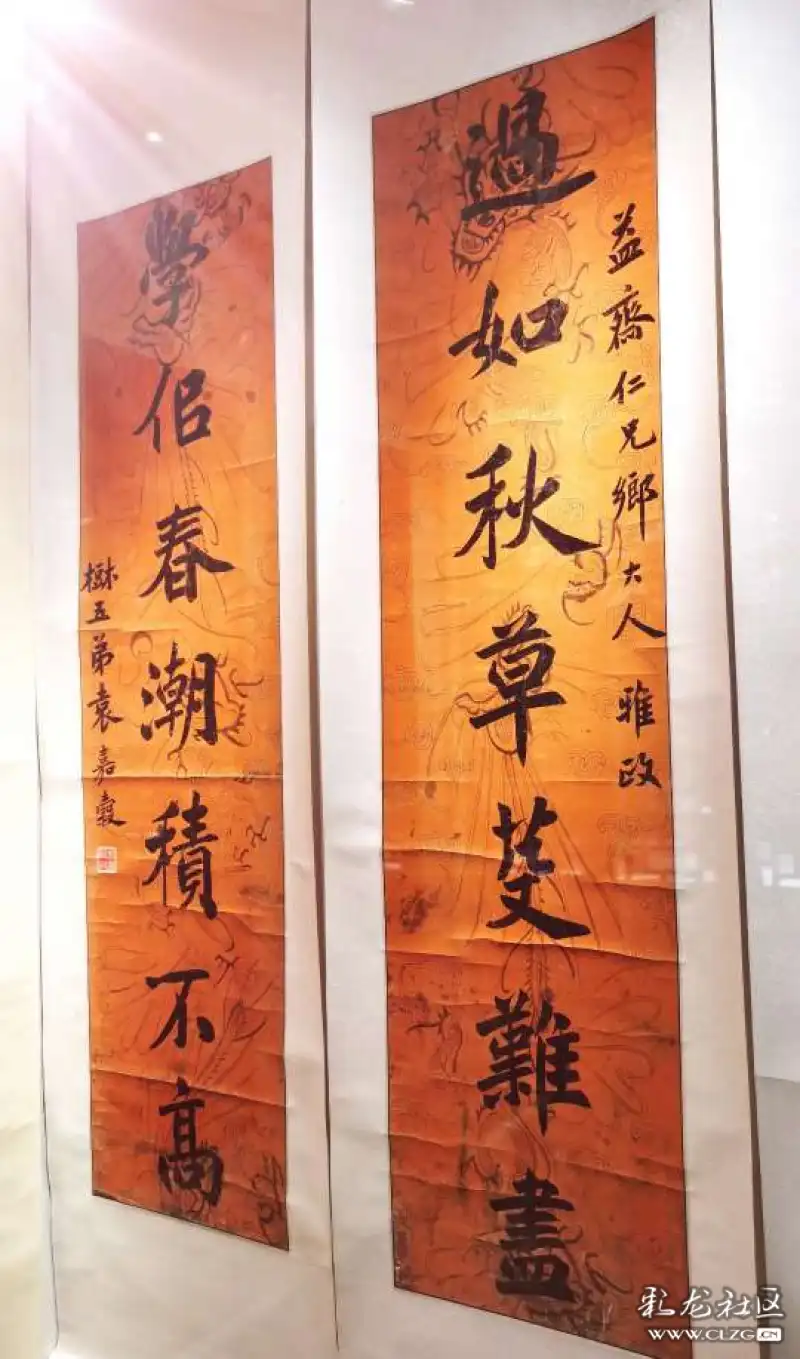 益齋仁兄鄉大人 雅政
過如秋草芟難盡
學佀春潮積不高
樹五弟袁嘉穀
彩龙社区
WWW.CLZG.CN